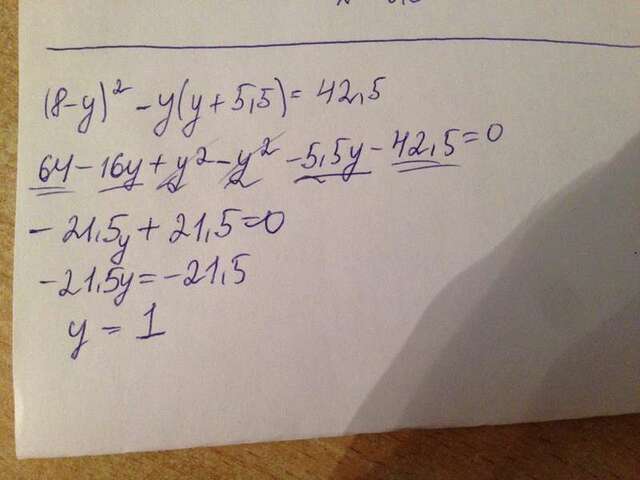 (8-y)² - y(y+5,5) = 42,5
64 - 16y + y² - y² - 5,5y - 42,5 = 0
- 21,5y + 21,5 = 0
- 21,5y = - 21,5
y = 1